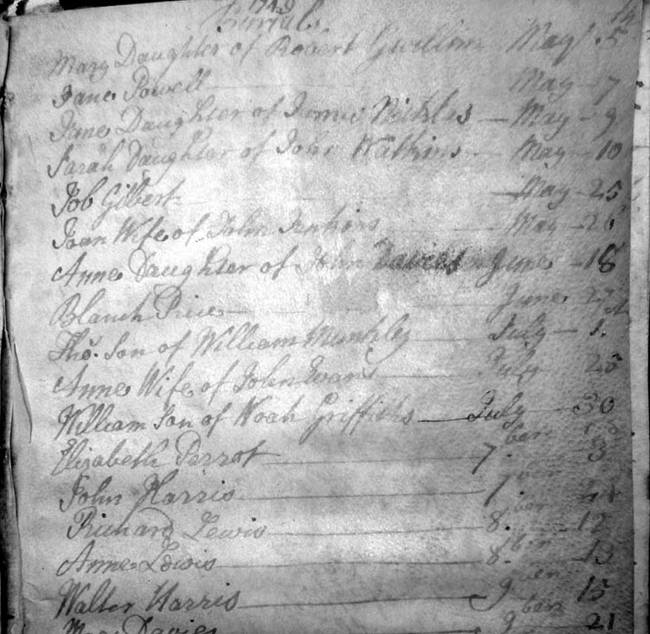 Burials
Mary Daughter of Robert Gwillim May 5
Jane Powell May 7
Jane Daughter of Nickles May 9
Sarah Daughter of John Watkins May 10
Job Gilbert May 25
Joan Wife of John Jenkins May
Anne Daughter of John Davies June 18
Blanch Price June
Tho.s Son of William July 1.
Anne Wife of John Evans July
William Son of Noah Griffiths July 30
Elizabeth Perrot 7.ber 3
John Harris 7.ber
Richard Lewis 8.ber 12
Anne Lewis 8.ber 13
Walter Harris 9.ber 15
Mary Davies 9.ber 21